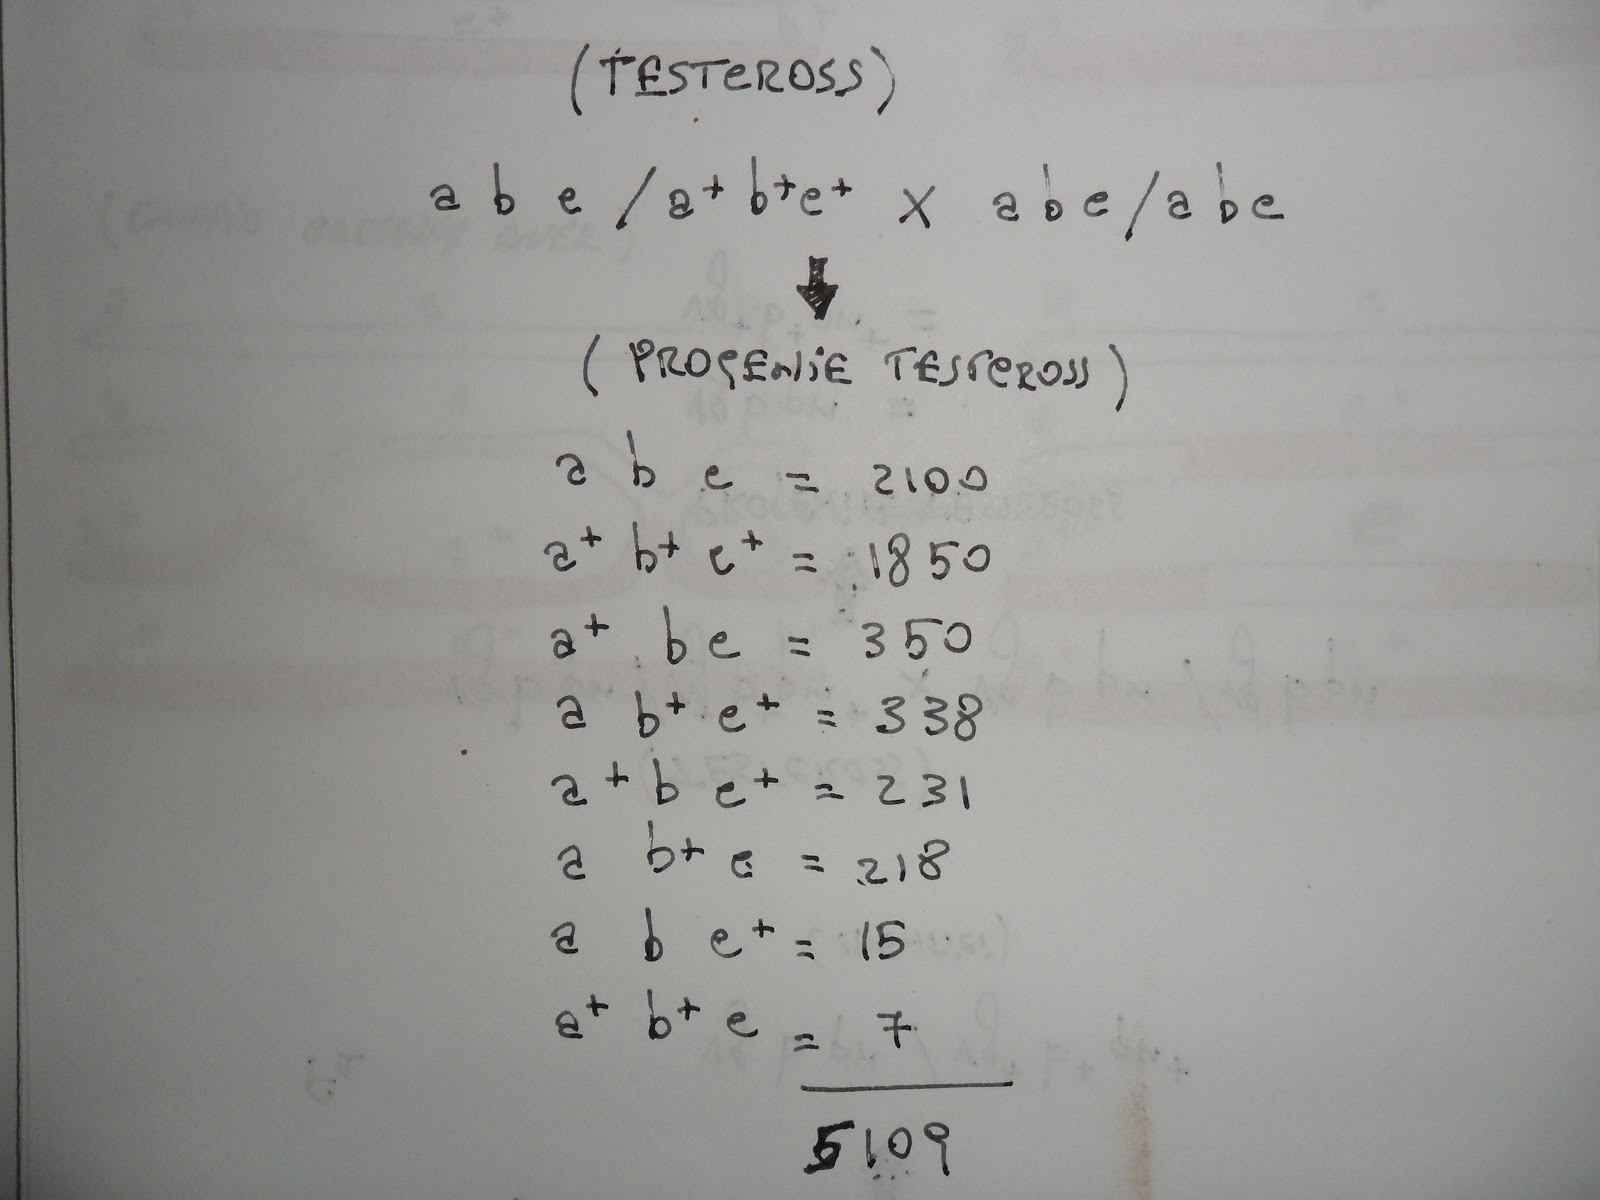 (TESTCROSS)
a b c / a+ b+ c+ X a b c / a b c
(PROGENIE TESTCROSS)
a b c = 2100
a+ b+ c+ = 1850
a+ b c = 350
a b+ c+ = 338
a+ b c+ = 231
a b+ c = 218
a b c+ = 15
a+ b+ c = 7
5109